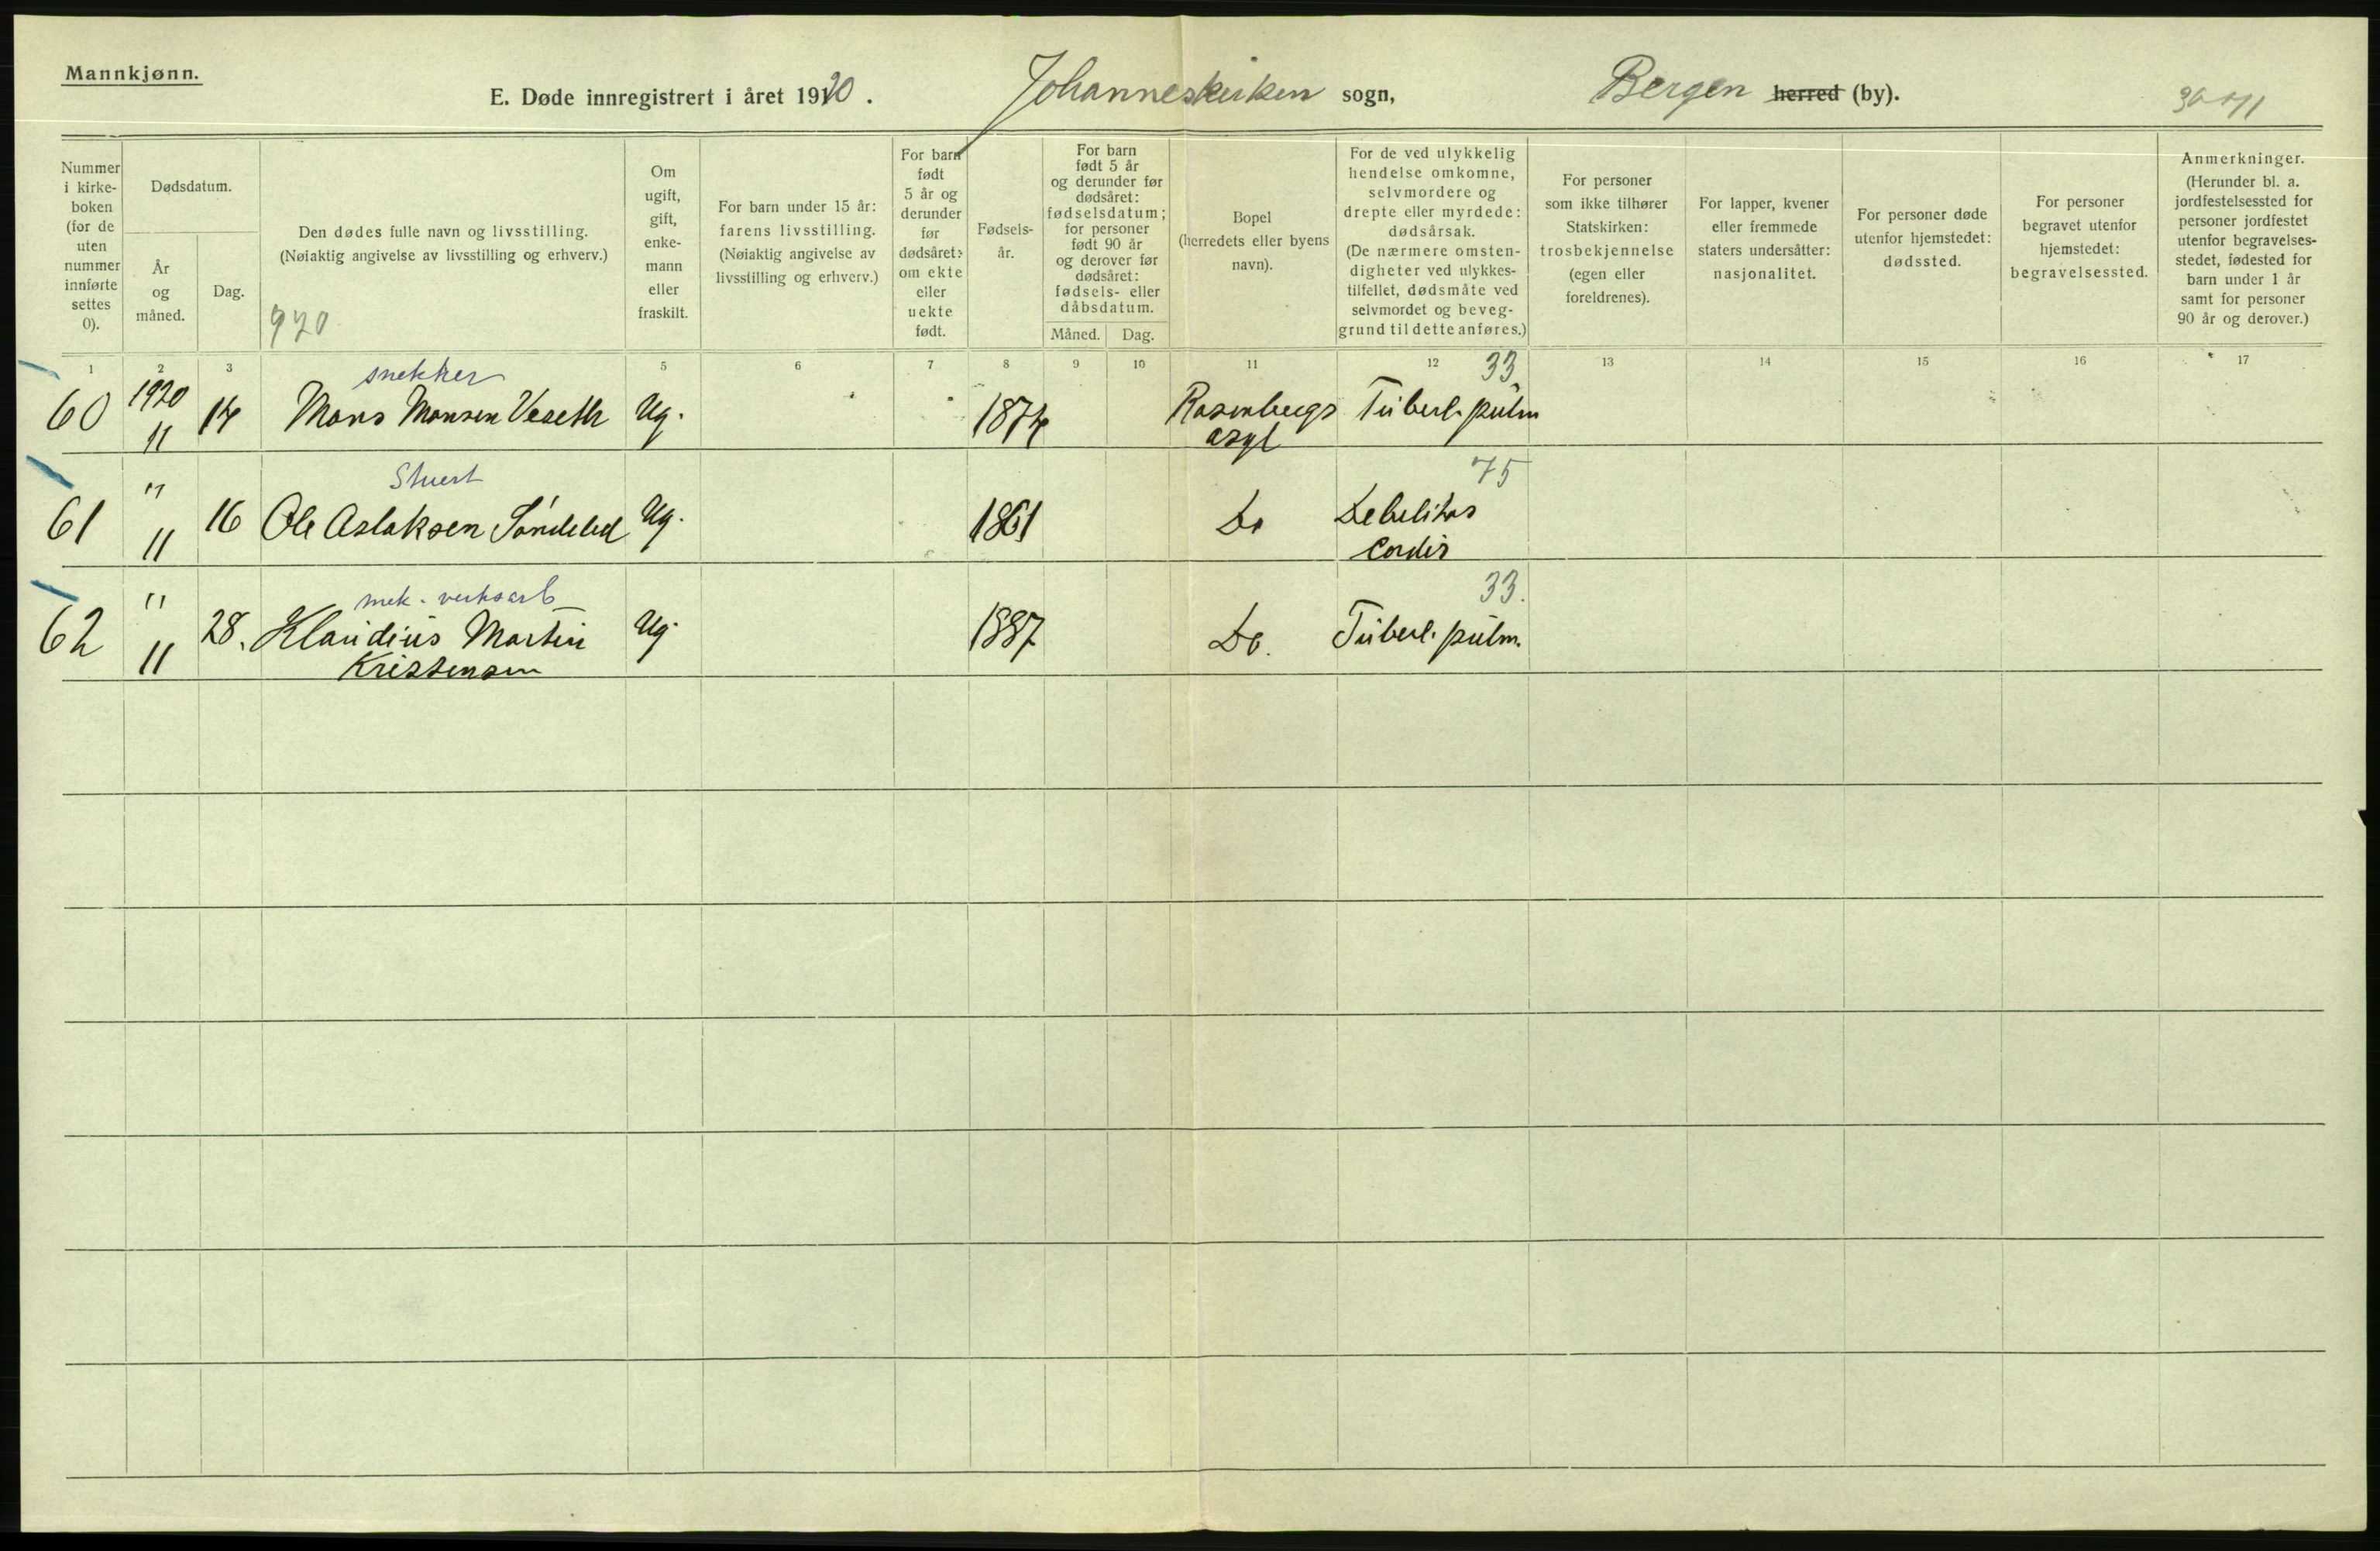 Mannkjønn.
E. Døde innregistrert i året 1920. Johanneskirken sogn, Bergen herred (by).
Nummer i kirke- boken (for de uten nummer innførte settes 0).
Dødsdatum.
År og måned.
Dag.
Den dødes fulle navn og livsstilling.
(Nøiaktig angivelse av livsstilling og erhverv.)
920
Om ugift, gift, enke- mann eller fraskilt.
For barn under 15 år:
farens livsstilling.
(Nøiaktig angivelse av
livsstilling og erhverv.)
For barn født 5 år og derunder før dødsåret: om ekte eller uekte født.
Fødsels- år.
For barn født 5 år og derunder før dødsåret: fødselsdatum; for personer født 90 år og derover før dødsåret: fødsels- eller dåbsdatum.
Måned. Dag.
Bopel
(herredets eller byens
navn).
For de ved ulykkelig
hendelse omkomne,
selvmordere og
drepte eller myrdede:
dødsårsak.
(De nærmere omsten-
digheter ved ulykkes-
tilfellet, dødsmåte ved
selvmordet og beveg-
grund til dette anføres.)
For personer
som ikke tilhører
Statskirken:
trosbekjennelse
(egen eller
foreldrenes).
For lapper, kvener
eller fremmede
staters undersåtter:
nasjonalitet.
For personer døde
utenfor hjemstedet:
dødssted.
For personer
begravet utenfor
hjemstedet:
begravelsessted.
Anmerkninger.
(Herunder bl. a.
jordfestelsessted for
personer jordfestet
utenfor begravelses-
stedet, fødested for
barn under 1 år
samt for personer
90 år og derover.)
1 2 3 5 6 7 8 9 10 11 12 13 14 15 16 17
snekker 33
60 1920 11 14 Mons Monsen Veseth Ug. 1874 Rosenbergs asyl Tuberk. pulm
Stuert 75
61 " 11 16 Ole Aslaksen Søndeled Ug. 1861 Do Debilitas Cordis
mek. verksarb 33.
62 " 11 28. Klaudius Martin Kristensen Ug. 1887 Do. Tuberk. pulm.